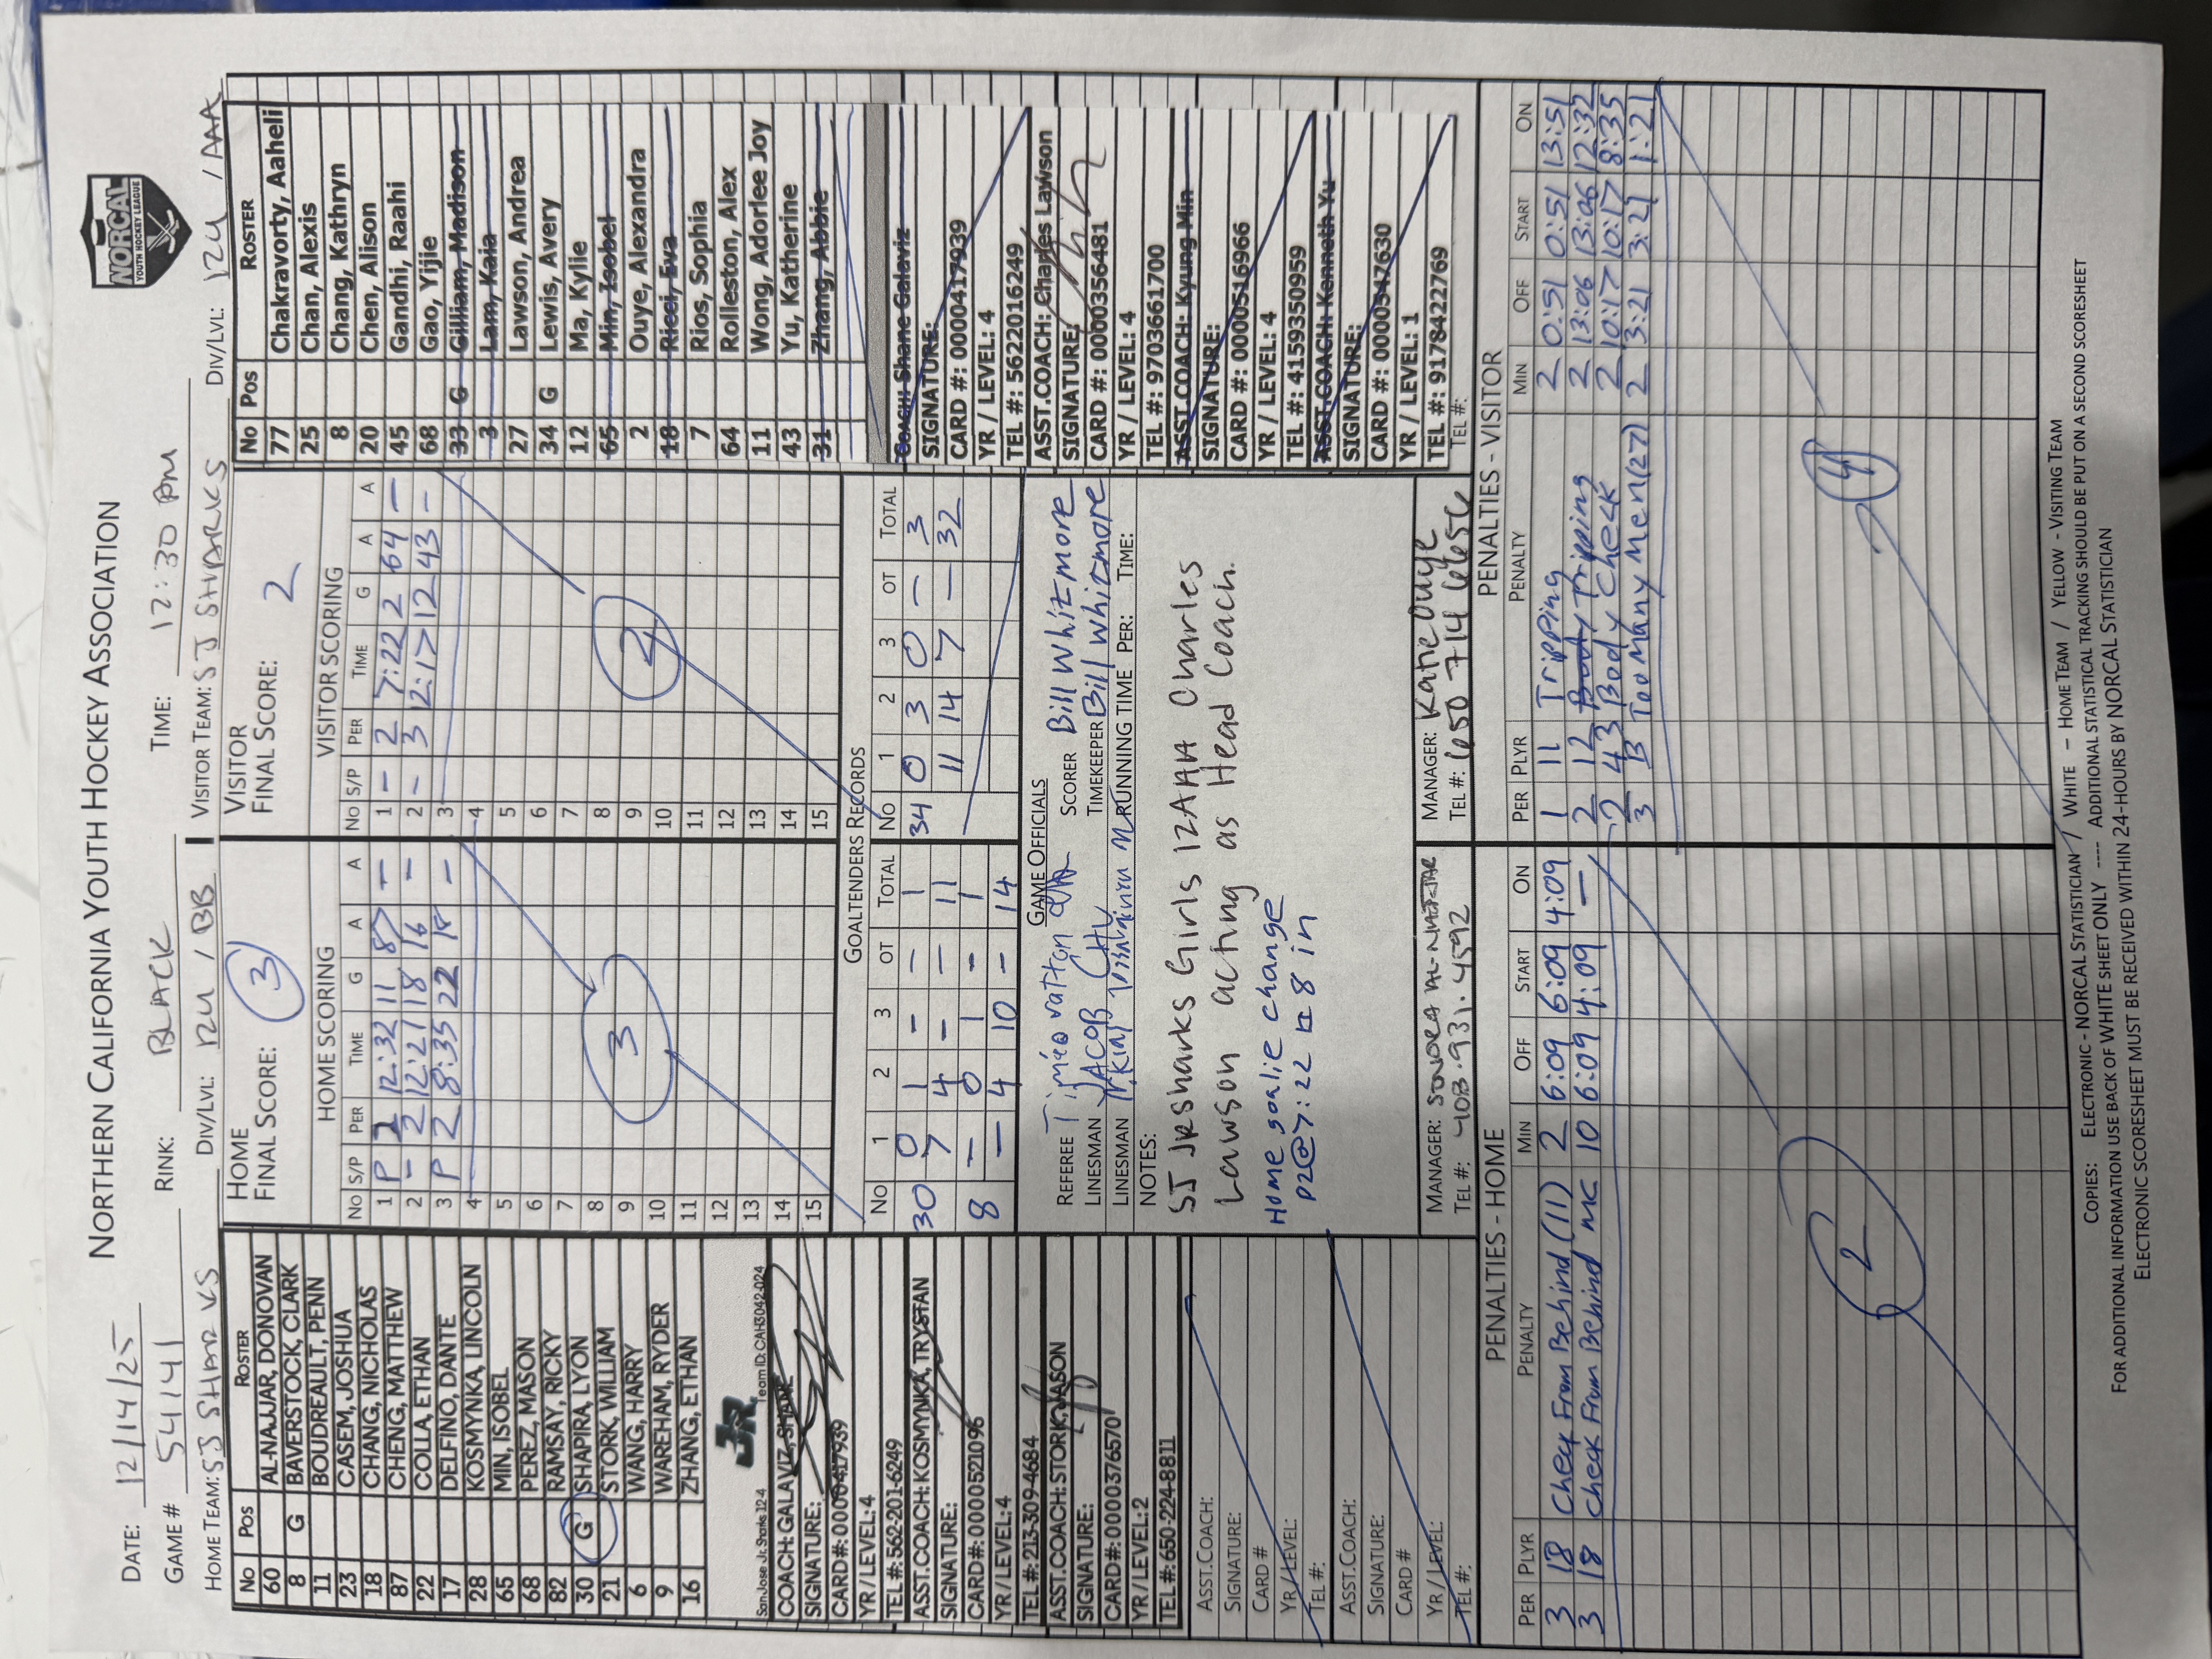 NORTHERN CALIFORNIA YOUTH HOCKEY ASSOCIATION
NORCAL
YOUTH HOCKEY LEAGUE
DATE: 12/14/25
GAME # 5414 RINK: BLACK TIME: 12:30 PM
HOME TEAM: SJ SHARKS DIV/LVL: 12U / BB VISITOR TEAM: SJ SHARKS DIV/LVL: 12U / AAA
No Pos ROSTER
60 AL-NAJJAR, DONOVAN
8 G BAVERSTOCK, CLARK
11 BOUDREAULT, PENN
23 CASEM, JOSHUA
18 CHANG, NICHOLAS
87 CHENG, MATTHEW
22 COLLA, ETHAN
17 DELFINO, DANTE
28 KOSMYNKA, LINCOLN
65 MIN, ISOBEL
68 PEREZ, MASON
82 RAMSAY, RICKY
30 G SHAPIRA, LYON
21 STORK, WILLIAM
6 WANG, HARRY
9 WAREHAM, RYDER
16 ZHANG, ETHAN
JR
San Jose Jr. Sharks 12-4 Team ID: CAH3042-024
COACH: GALAVIZ, SHANE
SIGNATURE:
CARD #: 0000417939
YR / LEVEL: 4
TEL #: 562-201-6249
ASST.COACH: KOSMYNKA, TRYSTAN
SIGNATURE:
CARD #: 0000521096
YR / LEVEL: 4
TEL #: 213-309-4684
ASST.COACH: STORK, JASON
SIGNATURE:
CARD #: 0000376570
YR / LEVEL: 2
TEL #: 650-224-8811
ASST.COACH:
SIGNATURE:
CARD #
YR / LEVEL:
TEL #:
ASST.COACH:
SIGNATURE:
CARD #
YR / LEVEL:
TEL #:
HOME
FINAL SCORE: 3
HOME SCORING
No S/P PER TIME G A A
1 P 2 12:32 11 87 —
2 - 2 12:21 18 16 —
3 P 2 8:35 22 18 —
4
5
6
7
8
9
10
11
12
13
14
15
3
VISITOR
FINAL SCORE: 2
VISITOR SCORING
No S/P PER TIME G A A
1 - 2 7:22 2 64 —
2 - 3 12:17 12 43 —
3
4
5
6
7
8
9
10
11
12
13
14
15
2
GOALTENDERS RECORDS
No 1 2 3 OT TOTAL No 1 2 3 OT TOTAL
30 0 1 - — 1 34 0 3 0 — 3
7 4 - — 11 11 14 7 — 32
8 — 0 1 - 1
— 4 10 - 14
GAME OFFICIALS
REFEREE SCORER Bill Whitmore
LINESMAN JACOB TIMEKEEPER Bill Whitmore
LINESMAN RUNNING TIME PER: TIME:
NOTES:
SJ Jr Sharks Girls 12AAA Charles
Lawson acting as Head Coach.
Home goalie change
P2@7:22 # 8 in
MANAGER: SONORA AL-NAJJAR
TEL #: 408.931.4592
MANAGER: Katie Ouye
TEL #: 650 714 6656
No Pos ROSTER
77 Chakravorty, Aaheli
25 Chan, Alexis
8 Chang, Kathryn
20 Chen, Alison
45 Gandhi, Raahi
68 Gao, Yijie
33 G Gilliam, Madison
3 Lam, Kaia
27 Lawson, Andrea
34 G Lewis, Avery
12 Ma, Kylie
65 Min, Isobel
2 Ouye, Alexandra
18 Ricci, Eva
7 Rios, Sophia
64 Rolleston, Alex
11 Wong, Adorlee Joy
43 Yu, Katherine
31 Zhang, Abbie
COACH: Shane Galaviz
SIGNATURE:
CARD #: 0000417939
YR / LEVEL: 4
TEL #: 5622016249
ASST.COACH: Charles Lawson
SIGNATURE:
CARD #: 0000356481
YR / LEVEL: 4
TEL #: 9703661700
ASST.COACH: Kyung Min
SIGNATURE:
CARD #: 0000516966
YR / LEVEL: 4
TEL #: 4159350959
ASST.COACH: Kenneth Yu
SIGNATURE:
CARD #: 0000547630
YR / LEVEL: 1
TEL #: 9178422769
TEL #:
PENALTIES - HOME
PER PLYR PENALTY MIN OFF START ON
3 18 Check From Behind (11) 2 6:09 6:09 4:09
3 18 Check From Behind MC 10 6:09 4:09 —
2
PENALTIES - VISITOR
PER PLYR PENALTY MIN OFF START ON
1 11 Tripping 2 0:51 0:51 13:51
2 12 Body Tripping 2 13:06 13:06 12:32
2 43 Body Check 2 10:17 10:17 8:35
3 B Too Many Men (27) 2 3:21 3:21 1:21
4
COPIES: ELECTRONIC - NORCAL STATISTICIAN / WHITE – HOME TEAM / YELLOW - VISITING TEAM
FOR ADDITIONAL INFORMATION USE BACK OF WHITE SHEET ONLY ---- ADDITIONAL STATISTICAL TRACKING SHOULD BE PUT ON A SECOND SCORESHEET
ELECTRONIC SCORESHEET MUST BE RECEIVED WITHIN 24-HOURS BY NORCAL STATISTICIAN